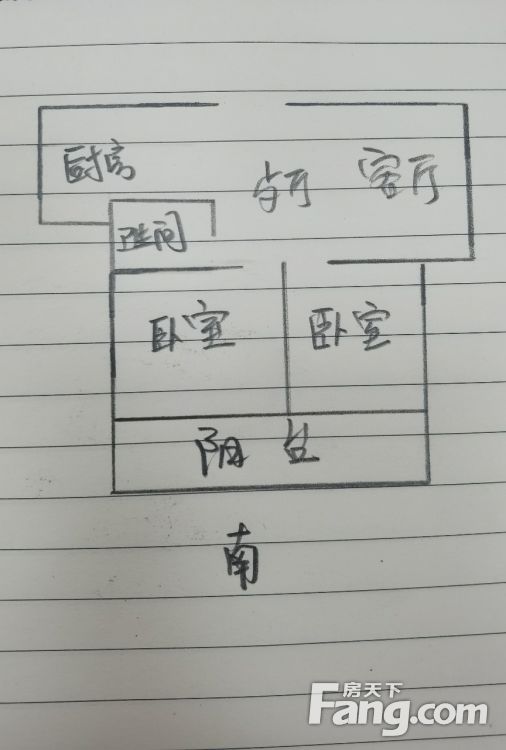 厨房
客厅
卫生间
卧室
卧室
阳台
南
房天下
Fang.com